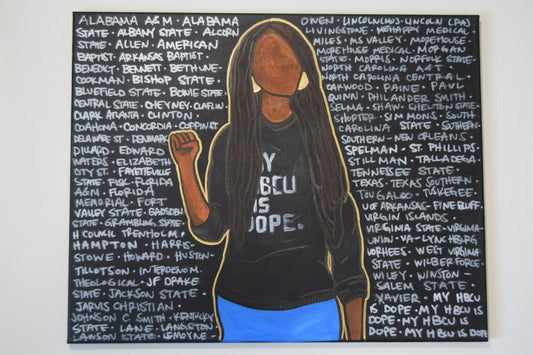 ALABAMA A&M · ALABAMA
STATE · ALBANY STATE · ALCORN
STATE · ALLEN · AMERICAN
BAPTIST · ARKANSAS BAPTIST ·
BENEDICT · BENNETT · BETHUNE-
COOKMAN · BISHOP STATE ·
BLUEFIELD STATE · BOWIE STATE ·
CENTRAL STATE · CHEYNEY · CLAFLIN ·
CLARK ATLANTA · CLINTON ·
COAHOMA · CONCORDIA · COPPIN ST
DELAWARE ST · DENMARK
DILLARD · EDWARD
WATERS · ELIZABETH
CITY ST · FAYETTEVILLE
STATE · FISK · FLORIDA
A&M · FLORIDA
MEMORIAL · FORT
VALLEY STATE · GADSDEN
STATE · GRAMBLING STATE ·
H COUNCIL TRENHOLM ·
HAMPTON · HARRIS-
STOWE · HOWARD · HUSTON-
TILLOTSON · INTERDENOM.
THEOLOGICAL · JF DRAKE
STATE · JACKSON STATE
JARVIS CHRISTIAN ·
JOHNSON C SMITH · KENTUCKY
STATE · LANE · LANGSTON ·
LAWSON STATE · LEMOYNE ·
OWEN · LINCOLN (MO) · LINCOLN (PA)
LIVINGSTONE · MEHARRY MEDICAL ·
MILES · MS VALLEY · MOREHOUSE ·
MOREHOUSE MEDICAL · MORGAN
STATE · MORRIS · NORFOLK STATE ·
NORTH CAROLINA A&T ·
NORTH CAROLINA CENTRAL ·
OAKWOOD · PAINE · PAUL
QUINN · PHILANDER SMITH ·
SELMA · SHAW · SHELTON STATE
SHORTER · SIMMONS · SOUTH
CAROLINA STATE · SOUTHERN ·
SOUTHERN - NEW ORLEANS ·
SPELMAN · ST. PHILLIPS
STILLMAN · TALLADEGA ·
TENNESSEE STATE ·
TEXAS · TEXAS SOUTHERN ·
TOUGALOO · TUSKEGEE ·
U OF ARKANSAS - PINE BLUFF ·
VIRGIN ISLANDS ·
VIRGINIA STATE · VIRGINIA
UNION · VA - LYNCHBURG
VORHEES · WEST VIRGINIA
STATE · WILBERFORCE ·
WILEY · WINSTON -
SALEM STATE ·
XAVIER · MY HBCU
IS DOPE · MY HBCU IS
DOPE · MY HBCU IS
DOPE · MY HBCU IS DOPE
MY
HBCU
IS
DOPE.